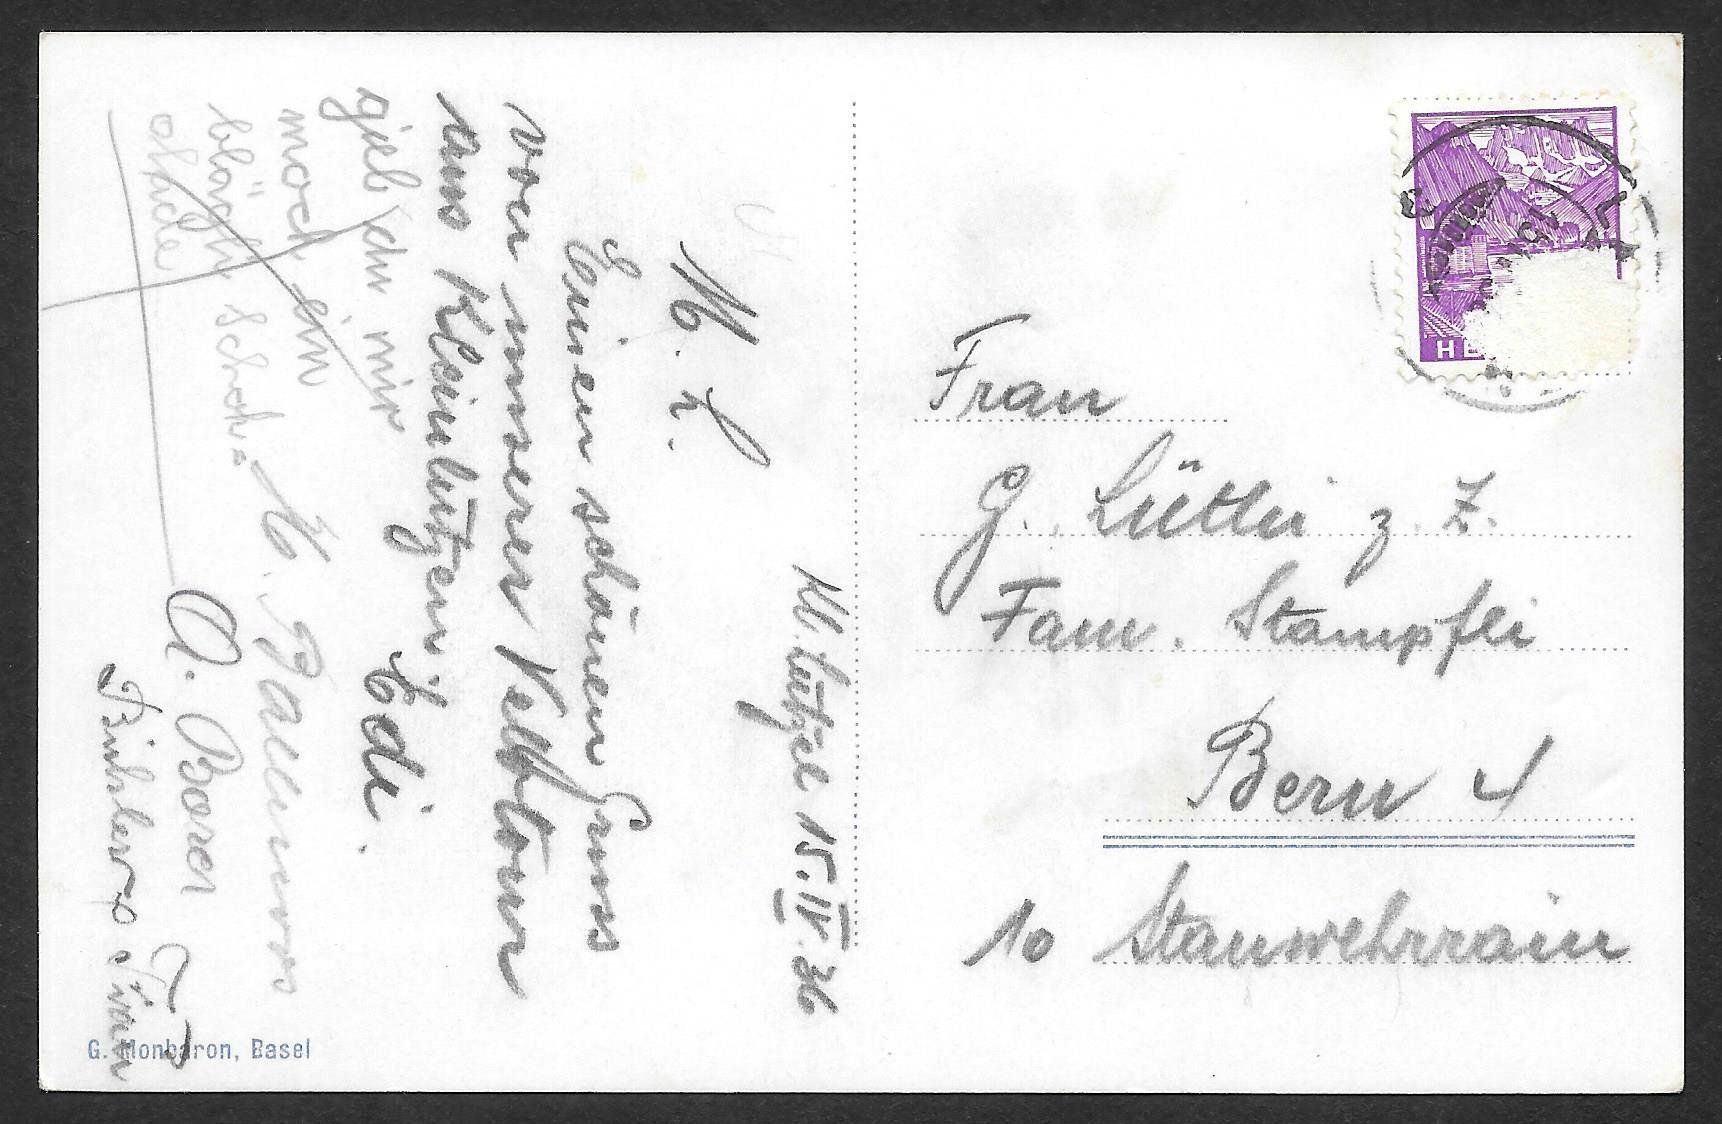 Kl. Lützel 15.IV.36
M. L.
Einen schönen Gruss
von unserer Velotour
aus Kleinlützen
Edi.
gieb du mir
noch ein
blöch schok=
olade
A. Borer
G. Monbaron, Basel
Frau
G. Lüthi z. Z.
Fam. Stampfli
Bern 4
10 Stauwehrrain
HE